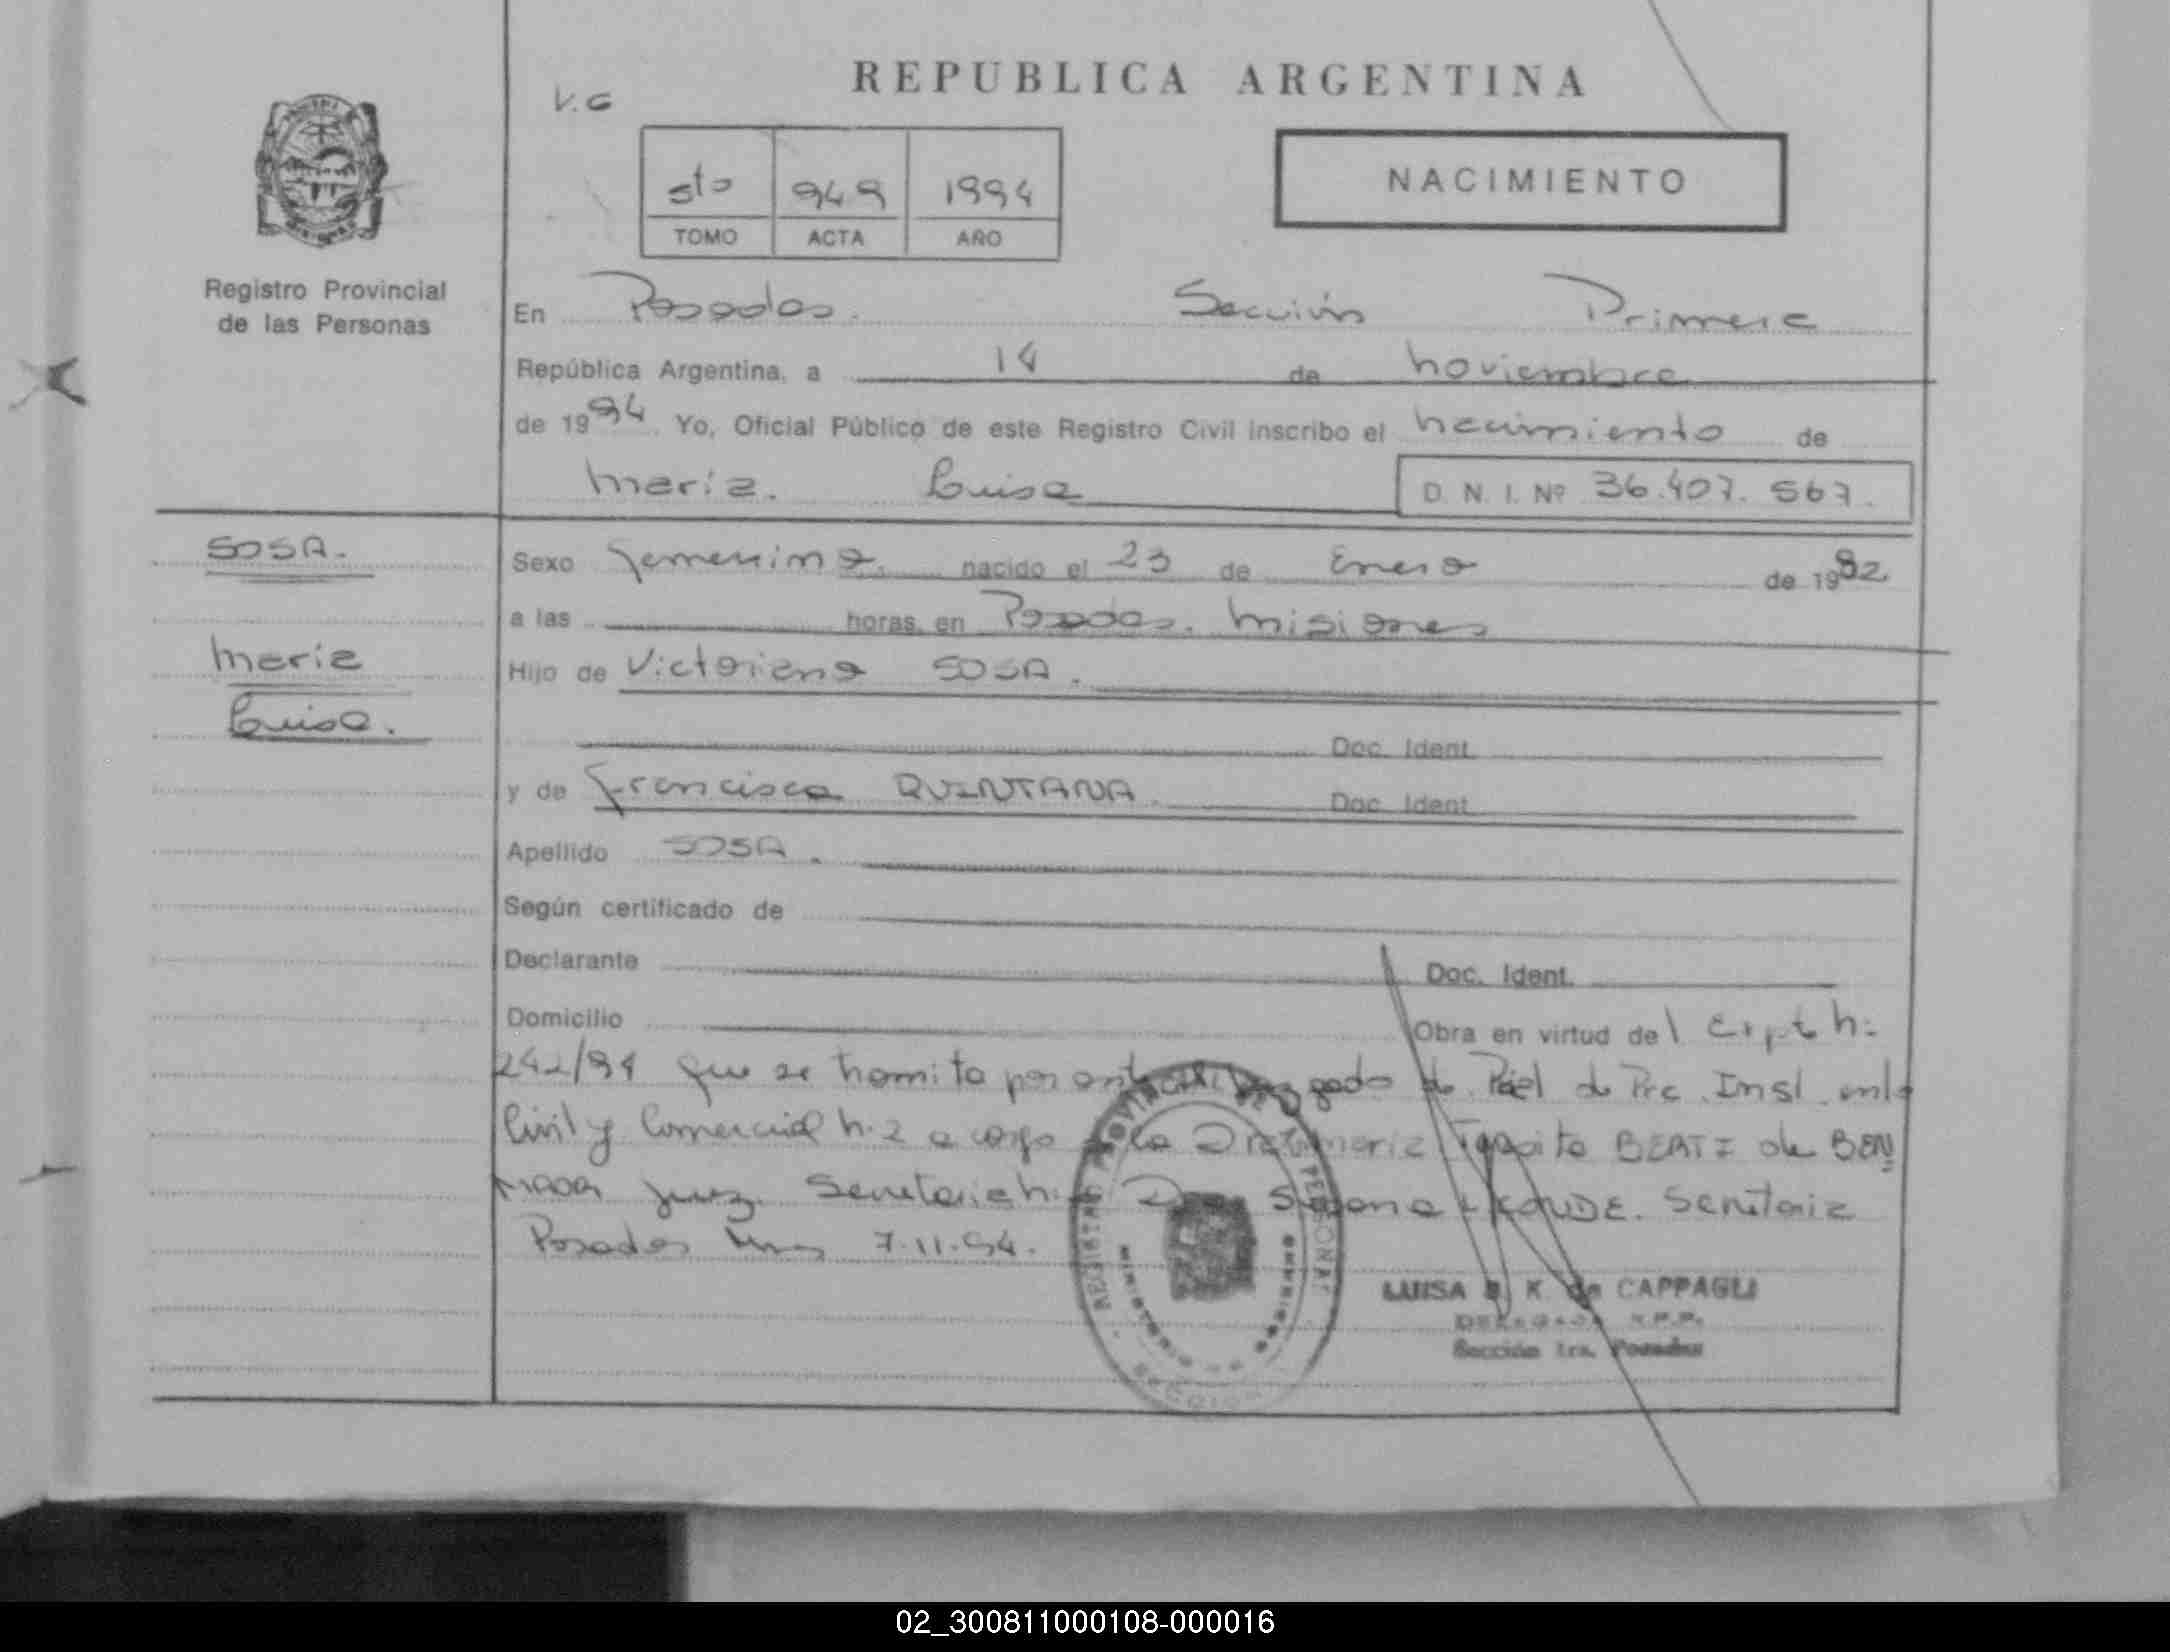 REPUBLICA ARGENTINA
V.G
5to 949 1994
TOMO ACTA AÑO
NACIMIENTO
Registro Provincial
de las Personas
En Posadas. Sección Primera
República Argentina, a 14 de noviembre
de 1994 Yo, Oficial Público de este Registro Civil inscribo el nacimiento de
María. Luisa D. N. I. Nº 36.407.567.
SOSA.
María
Luisa.
Sexo femenino. nacido el 23 de Enero de 1992
a las horas, en Posadas. Misiones
Hijo de Victoriano SOSA.
Doc. Ident.
y de Francisca QUINTANA. Doc. Ident.
Apellido SOSA.
Según certificado de
Declarante Doc. Ident.
Domicilio Obra en virtud del Expt n:
242/94 que se tramita por ante de Pria. Inst. en lo
Civil y Comercial n. 2 a cargo de la BEATZ de BEN
Juez. Secretaria n. Susana CONDE. Secretaria
Posadas Mnes 7.11.94.
REGISTRO PROVINCIAL DE PERSONAS
MINISTERIO DE GOBIERNO
SECCION
LUISA K. de CAPPAGLI
DELEGADA R.P.P.
Sección 1ra. Posadas
02_300811000108-000016